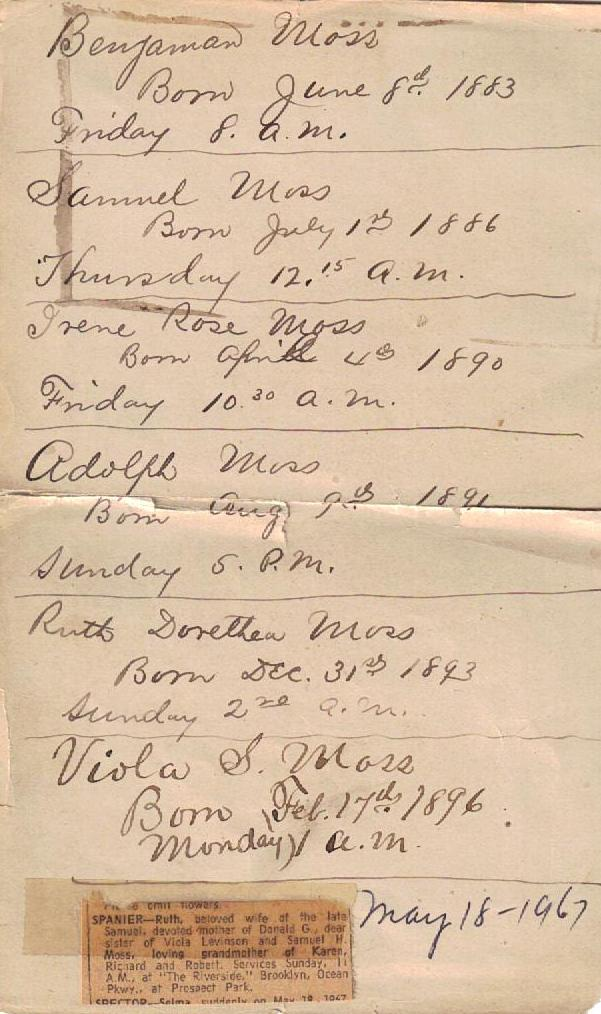 Benjaman Moss
Born June 8th 1883
Friday 8. a.m.
Samuel Moss
Born July 1st 1886
Thursday 12.15 A.M.
Irene Rose Moss
Born April 4th 1890
Friday 10.30 a.m.
Adolph Moss
Born Aug 9th 1891
Sunday 5. P.M.
Ruth Dorethea Moss
Born Dec. 31st 1893
Sunday 2 a.m.
Viola S. Moss
Born Feb. 17th 1896
Monday 1 a.m.
May 18-1967
Please omit flowers.
SPANIER—Ruth, beloved wife of the late
Samuel, devoted mother of Donald G., dear
sister of Viola Levinson and Samuel H.
Moss, loving grandmother of Karen,
Richard and Robert. Services Sunday, 11
A.M., at "The Riverside," Brooklyn, Ocean
Pkwy., at Prospect Park.
SPECTOR—Selma, suddenly on May 18, 1967